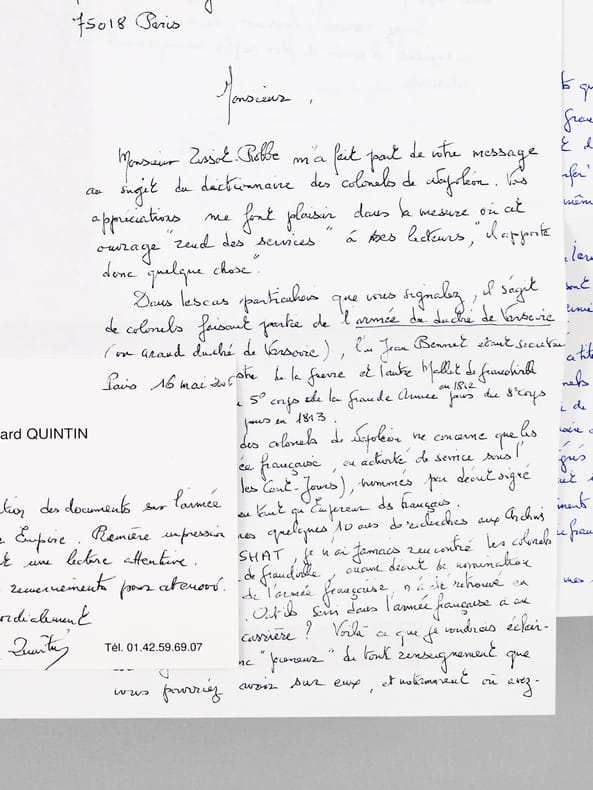 75018 Paris
Monsieur,
Monsieur Tissot-Robbe m'a fait part de votre message
au sujet du dictionnaire des colonels de Napoléon. Vos
appréciations me font plaisir dans la mesure où cet
ouvrage "rend des services" à ses lecteurs, "il apporte
donc quelque chose".
Dans les cas particuliers que vous signalez, il s'agit
de colonels faisant partie de l'armée du duché de Varsovie
(ou grand duché de Varsovie), l'un Jean Bennet étant
de la guerre et l'autre Mallet de
5° corps de la Grande Armée en 1812 puis du 8° corps
puis en 1813.
des colonels de Napoléon ne concerne que les
française, en activité de service sous l'
les Cent-Jours), nommés par décret signé
en tant qu'Empereur des français.
quelques 10 ans de recherches aux
SHAT, je n'ai jamais rencontré les colonels
de, aucun décret de nomination
de l'armée française, n'a été retrouvé en
. Ont-ils servi dans l'armée française à
carrière ? Voilà ce que je voudrais éclair-
"preneur" de tout renseignement que
vous pourriez avoir sur eux, et notamment où avez-
Paris 16 mai
ard QUINTIN
tion des documents sur l'armée
Empire. Première impression
une lecture attentive.
remerciements pour
ordialement
Quintin
Tél. 01.42.59.69.07